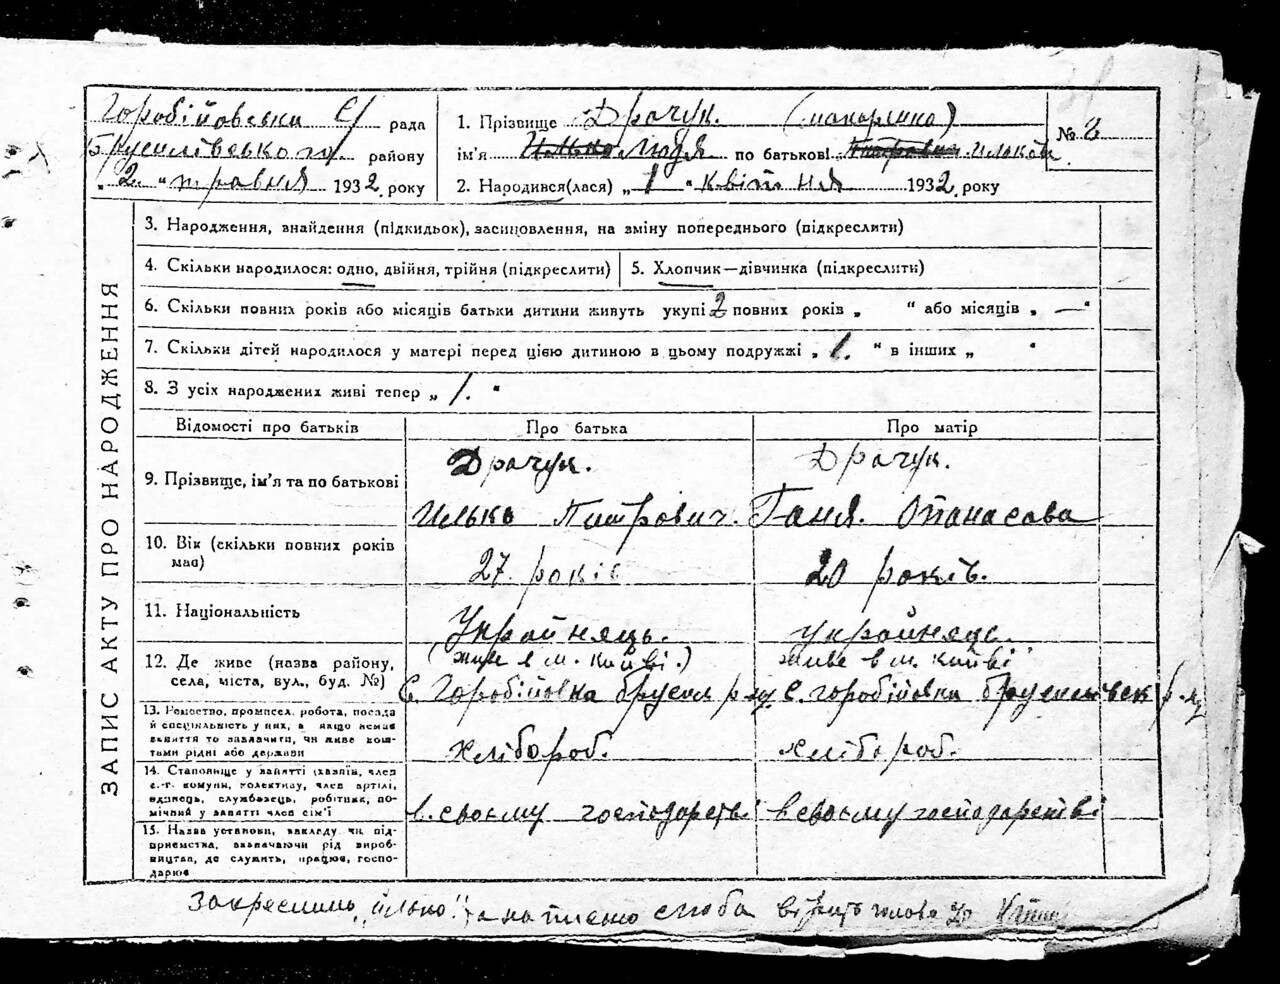 Горобійовська С/ рада
Брусилівського району
„ 2 " травня 1932 року
1. Прізвище Драчук. (макарлико)
ім'я Илько Людя по батькові Питрович Илькова
2. Народився(лася) „ 1 " квітня 1932 року
№ 2
ЗАПИС АКТУ ПРО НАРОДЖЕННЯ
3. Народження, знайдення (підкидьок), засиновлення, на зміну попереднього (підкреслити)
4. Скільки народилося: одно, двійня, трійня (підкреслити)
5. Хлопчик—дівчинка (підкреслити)
6. Скільки повних років або місяців батьки дитини живуть укупі 2 повних років „ " або місяців „ — "
7. Скільки дітей народилося у матері перед цією дитиною в цьому подружжі „ 1. " в інших „ "
8. З усіх народжених живі тепер „ 1. "
Відомості про батьків
Про батька
Про матір
9. Прізвище, ім'я та по батькові
Драчук.
Илько Питрович.
Драчук.
Ганя. Опанасова
10. Вік (скільки повних років
має)
27 років
20 років.
11. Національність
Українець.
Українец.
12. Де живе (назва району,
села, міста, вул., буд. №)
(живе в м. Київі.)
С. Горобійовка Брусил р-ну
живе в м. Київі
С. Горобійовка Брусилівськ р-ну
13. Ремество, промисел, робота, посада
й спеціяльність у них, а якщо немає
заняття то зазначити, чи живе кош-
тами рідні або держави
хлібороб.
хлібороб.
14. Становище у занятті (хазяїн, член
с.-г. комуни, колективу, член артілі,
одинець, службовець, робітник, по-
мічний у занятті член сім'ї
в своєму господарстві
в своєму господарстві
15. Назва установи, закладу чи під-
приємства, зазначаючи рід вироб-
ництва, де служить, працює, госпо-
дарює
Закреслино „Илько" та написано вірить голова